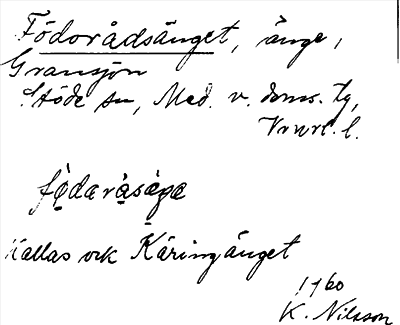 Födorådsänget, änge,
Gransjön
Stöde sn, Med. v. doms. tg,
Vnvrl. l.
födaråsäŋe
Kallas ock Käringänget
1960
K. Nilsson